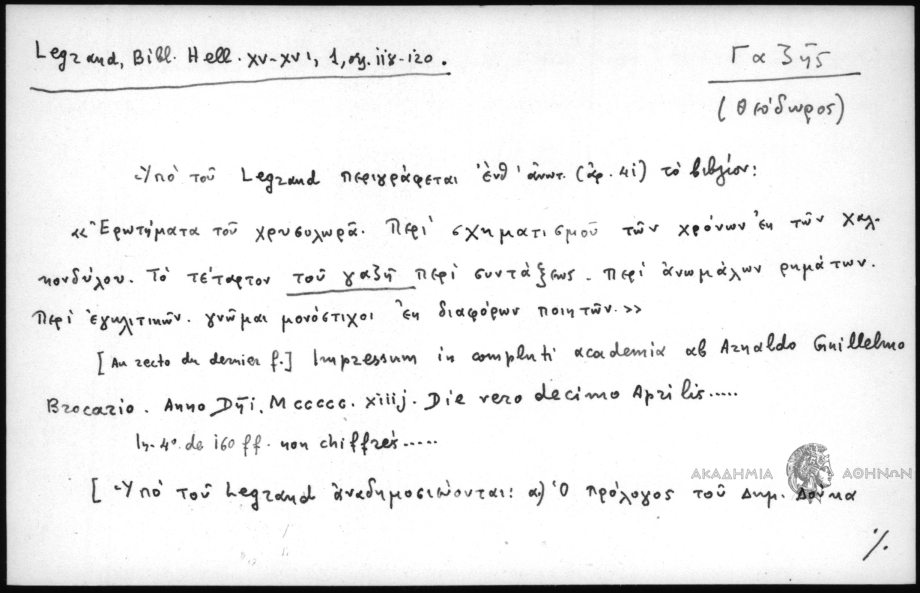 Legrand, Bibl. Hell. XV-XVI, 1, σσ. 118-120.
Γαζῆς
(Θεόδωρος)
Ὑπὸ τοῦ Legrand περιγράφεται ἔνθ' ἀνωτ. (ἀρ. 41) τὸ βιβλίον:
«Ἐρωτήματα τοῦ χρυσολωρᾶ. Περὶ σχηματισμοῦ τῶν χρόνων ἐκ τῶν χαλ-
κονδύλου. Τὸ τέταρτον τοῦ γαζῆ περὶ συντάξεως. Περὶ ἀνωμάλων ρημάτων.
Περὶ ἐγκλιτικῶν. γνῶμαι μονόστιχοι ἐκ διαφόρων ποιητῶν.»
[Au recto du dernier f.] Impressum in compluti academia ab Arnaldo Guillelmo
Brocario. Anno Dñi. Mccccc. xiiij. Die vero decimo Aprilis.....
In-4º de 160 ff. non chiffrés.....
ΑΚΑΔΗΜΙΑ ΑΘΗΝΩΝ
[Ὑπὸ τοῦ Legrand ἀναδημοσιεύονται: α) Ὁ πρόλογος τοῦ Δημ. Δούκα
%